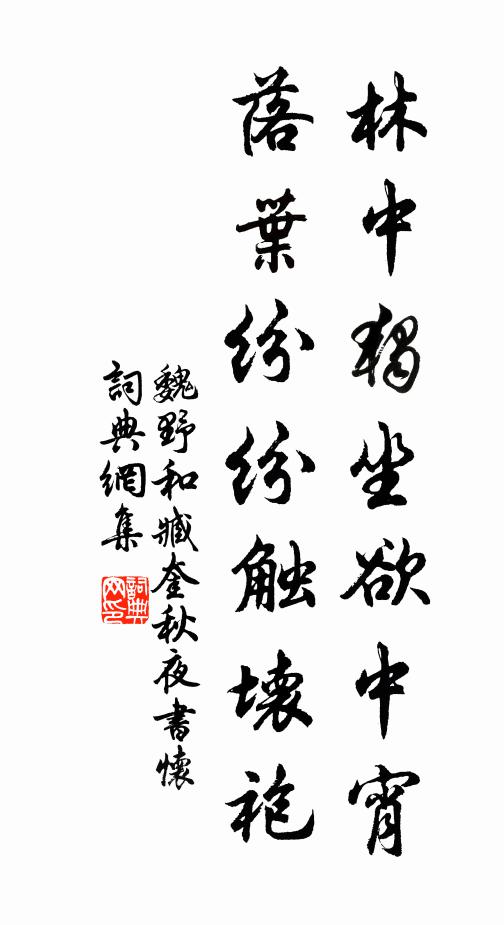 林中獨坐欲中宵
落葉紛紛触壞袍
魏野和臧奎秋夜書懷
詞典網集
詞典網印